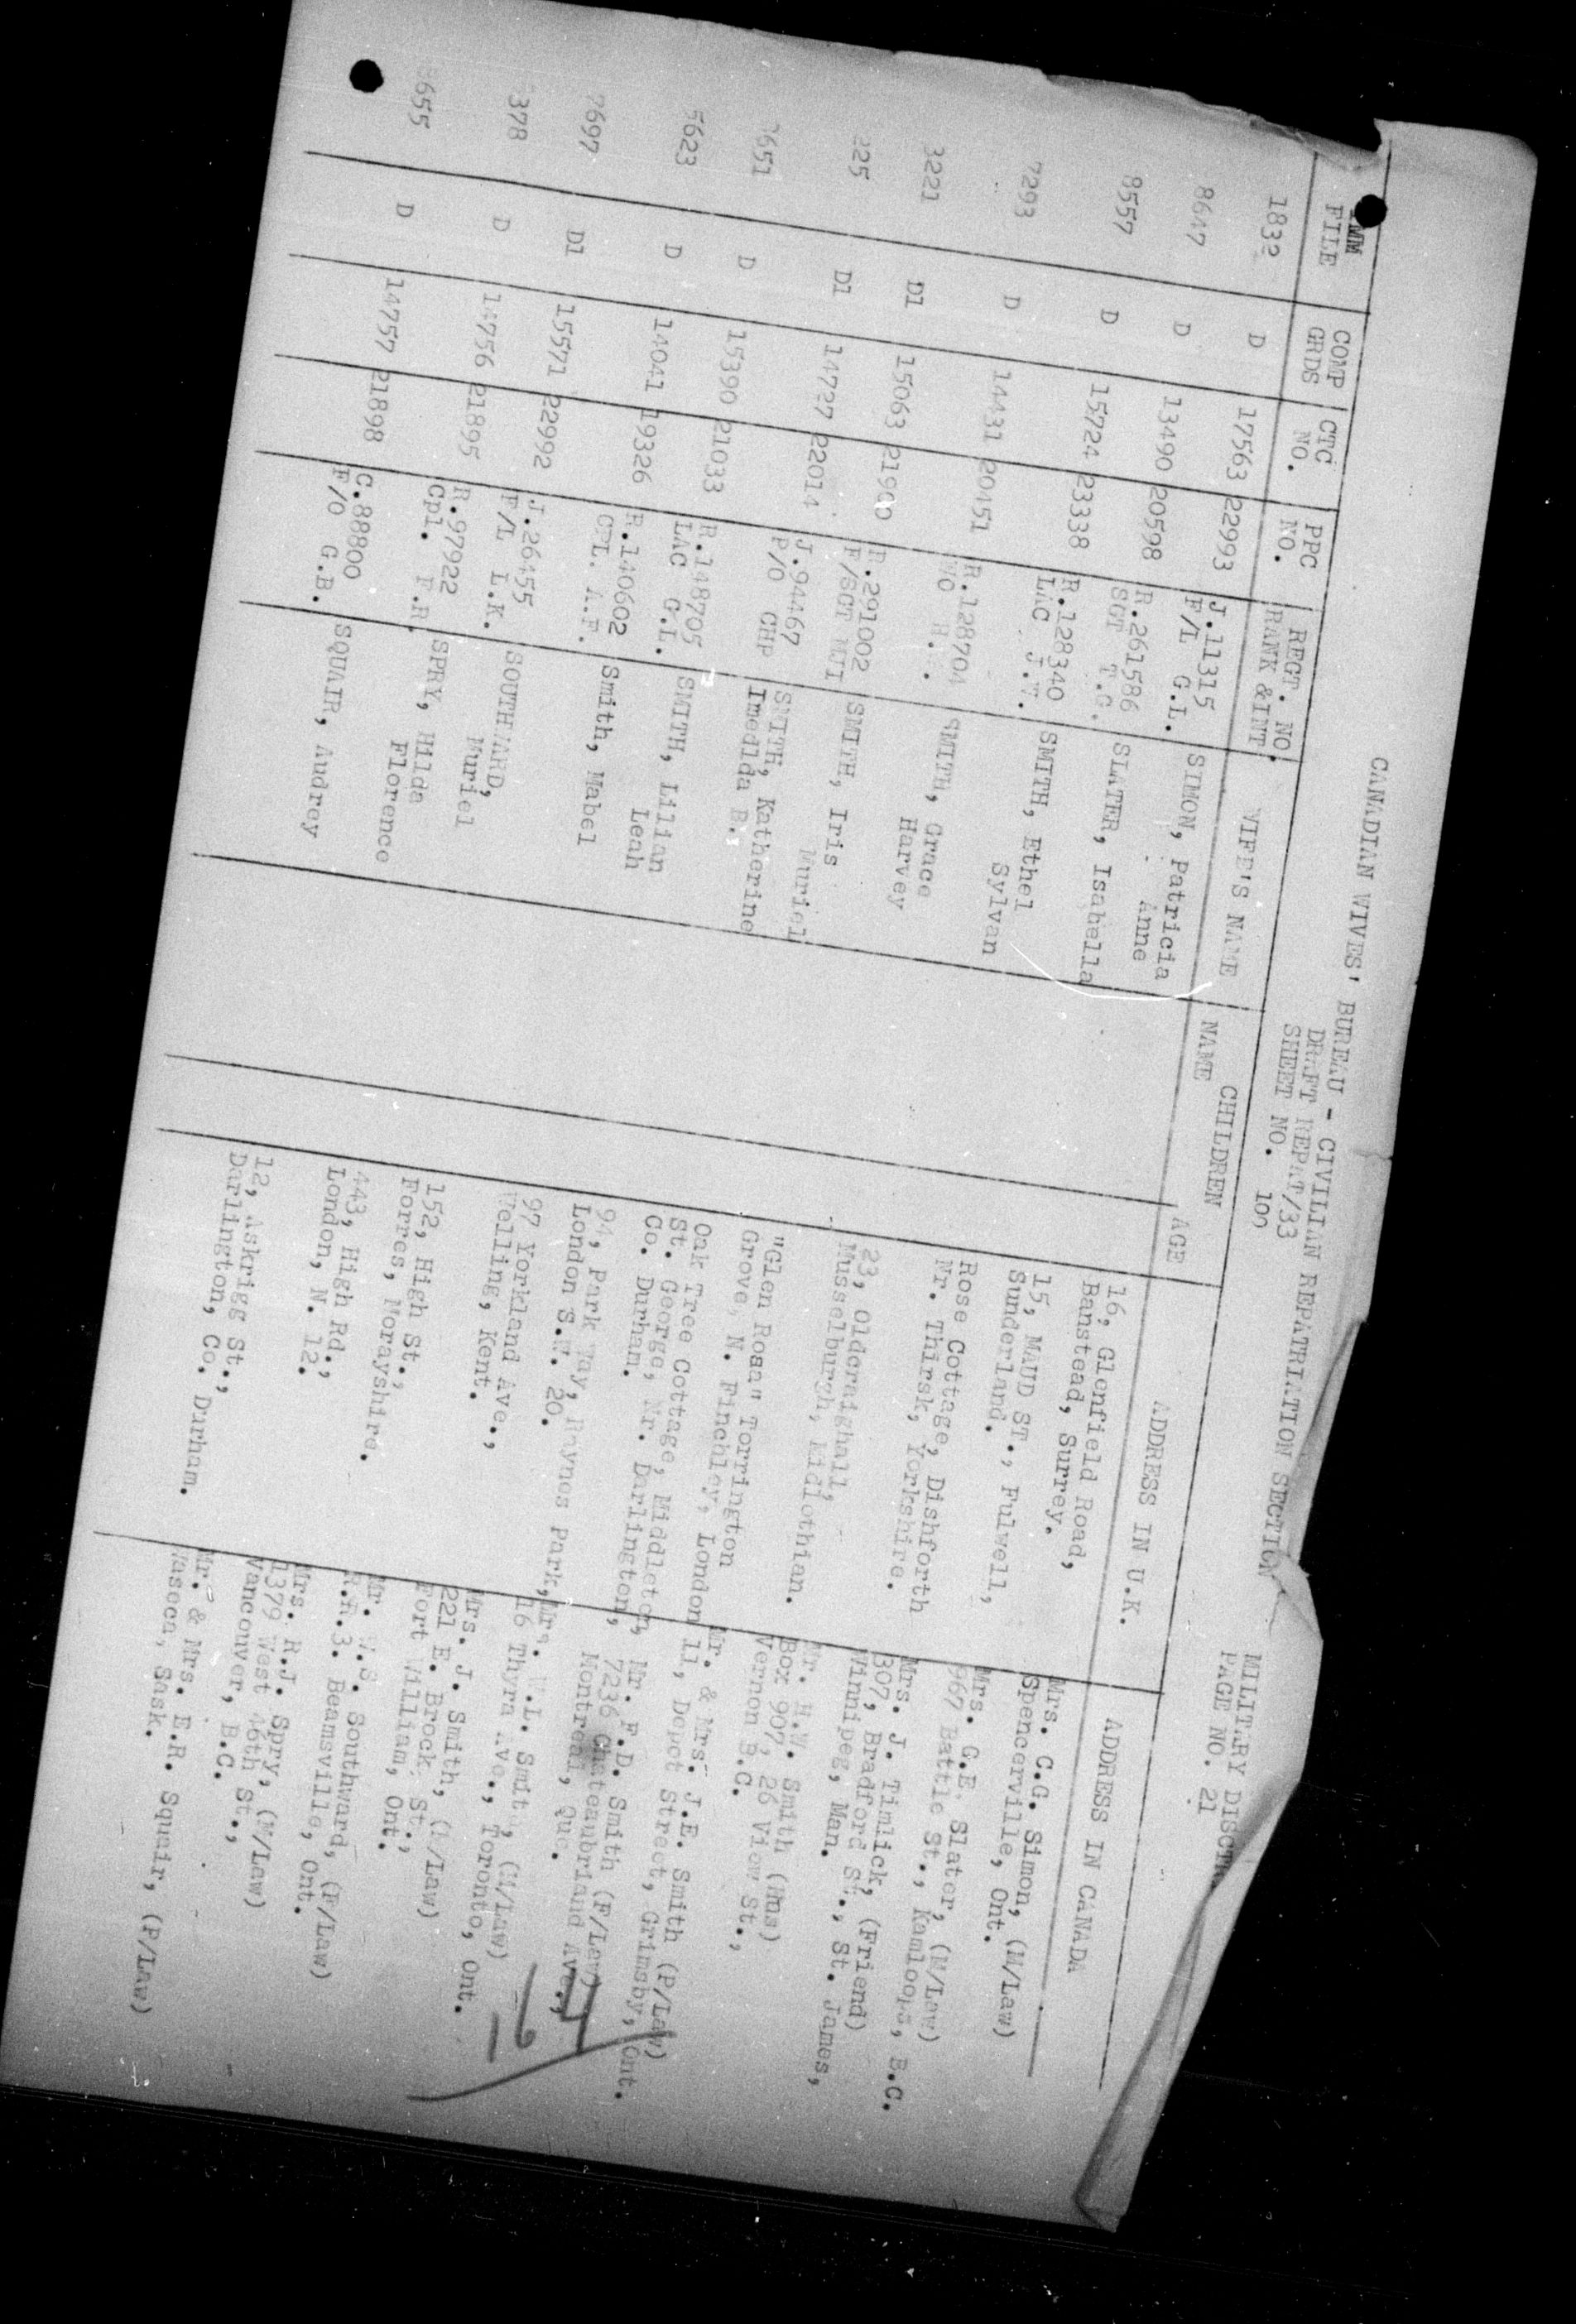 CANADIAN WIVES' BUREAU - CIVILIAN REPATRIATION SECTION
DRAFT REPAT/33
SHEET NO. 109
MILITARY DISCT.
PAGE NO. 21
IMM FILE COMP GRDS CTC NO. PPC NO. REGT. NO. RANK & INT WIFE'S NAME CHILDREN NAME AGE ADDRESS IN U.K. ADDRESS IN CANADA
1832 D 17563 22993 J.11315 SIMON, Patricia 16, Glenfield Road, Mrs. C.G. Simon, (M/Law)
F/L G.L. Anne Banstead, Surrey. Spencerville, Ont.
8647 D 13490 20598 R.261586 SLATER, Isabella 15, MAUD ST., Fulwell, Mrs. G.E. Slater, (M/Law)
SGT T.G. Sunderland. 967 Battle St., Kamloops, B.C.
8557 D 15724 23338 R.128340 SMITH, Ethel Rose Cottage, Dishforth Mrs. J. Timlick, (Friend)
LAC Sylvan Nr. Thirsk, Yorkshire. 307, Bradford St., St. James,
Winnipeg, Man.
7293 D 14431 20451 R.128704 SMITH, Grace 23, Oldcraighall, Mr. H.W. Smith (Hus)
WO Harvey Musselburgh, Midlothian. Box 907, 26 View St.,
Vernon B.C.
3221 D1 15063 21900 R.291002 SMITH, Iris "Glen Rosa" Torrington Mr. & Mrs. J.E. Smith (P/Law)
F/SGT Muriel Grove, N. Finchley, London 11, Depot Street, Grimsby, Ont.
225 D1 14727 22014 J.94467 SMITH, Katherine Oak Tree Cottage, Middleton Mr. F.D. Smith (F/Law)
P/O CHP Imedlda B. St. George, Nr. Darlington, 7236 Chateaubriand Ave.,
Co. Durham. Montreal, Que.
651 D 15390 21033 R.148705 SMITH, Lilian 94, Park Way, Raynes Park, Mrs. W.L. Smith, (M/Law)
LAC G.L. Leah London S.W. 20. 16 Thyra Ave., Toronto, Ont.
5623 D 14041 19326 R.140602 Smith, Mabel 97 Yorkland Ave., Mrs. J. Smith, (M/Law)
CPL. A.F. Welling, Kent. 221 E. Brock, St.,
Fort William, Ont.
7697 D1 15571 22992 J.26455 SOUTHWARD, 152, High St., Mr. W.S. Southward, (F/Law)
F/L L.K. Muriel Forres, Morayshire. R.R.3. Beamsville, Ont.
378 D 14756 21895 R.97922 SPRY, Hilda 443, High Rd., Mrs. R.J. Spry, (M/Law)
Cpl. F.R. Florence London, N. 12. 1379 West 46th St.,
Vancouver, B.C.
655 D 14757 21898 C.88800 SQUAIR, Audrey 12, Askrigg St., Mr. & Mrs. E.R. Squair, (P/Law)
F/O G.B. Darlington, Co. Durham. Waseca, Sask.